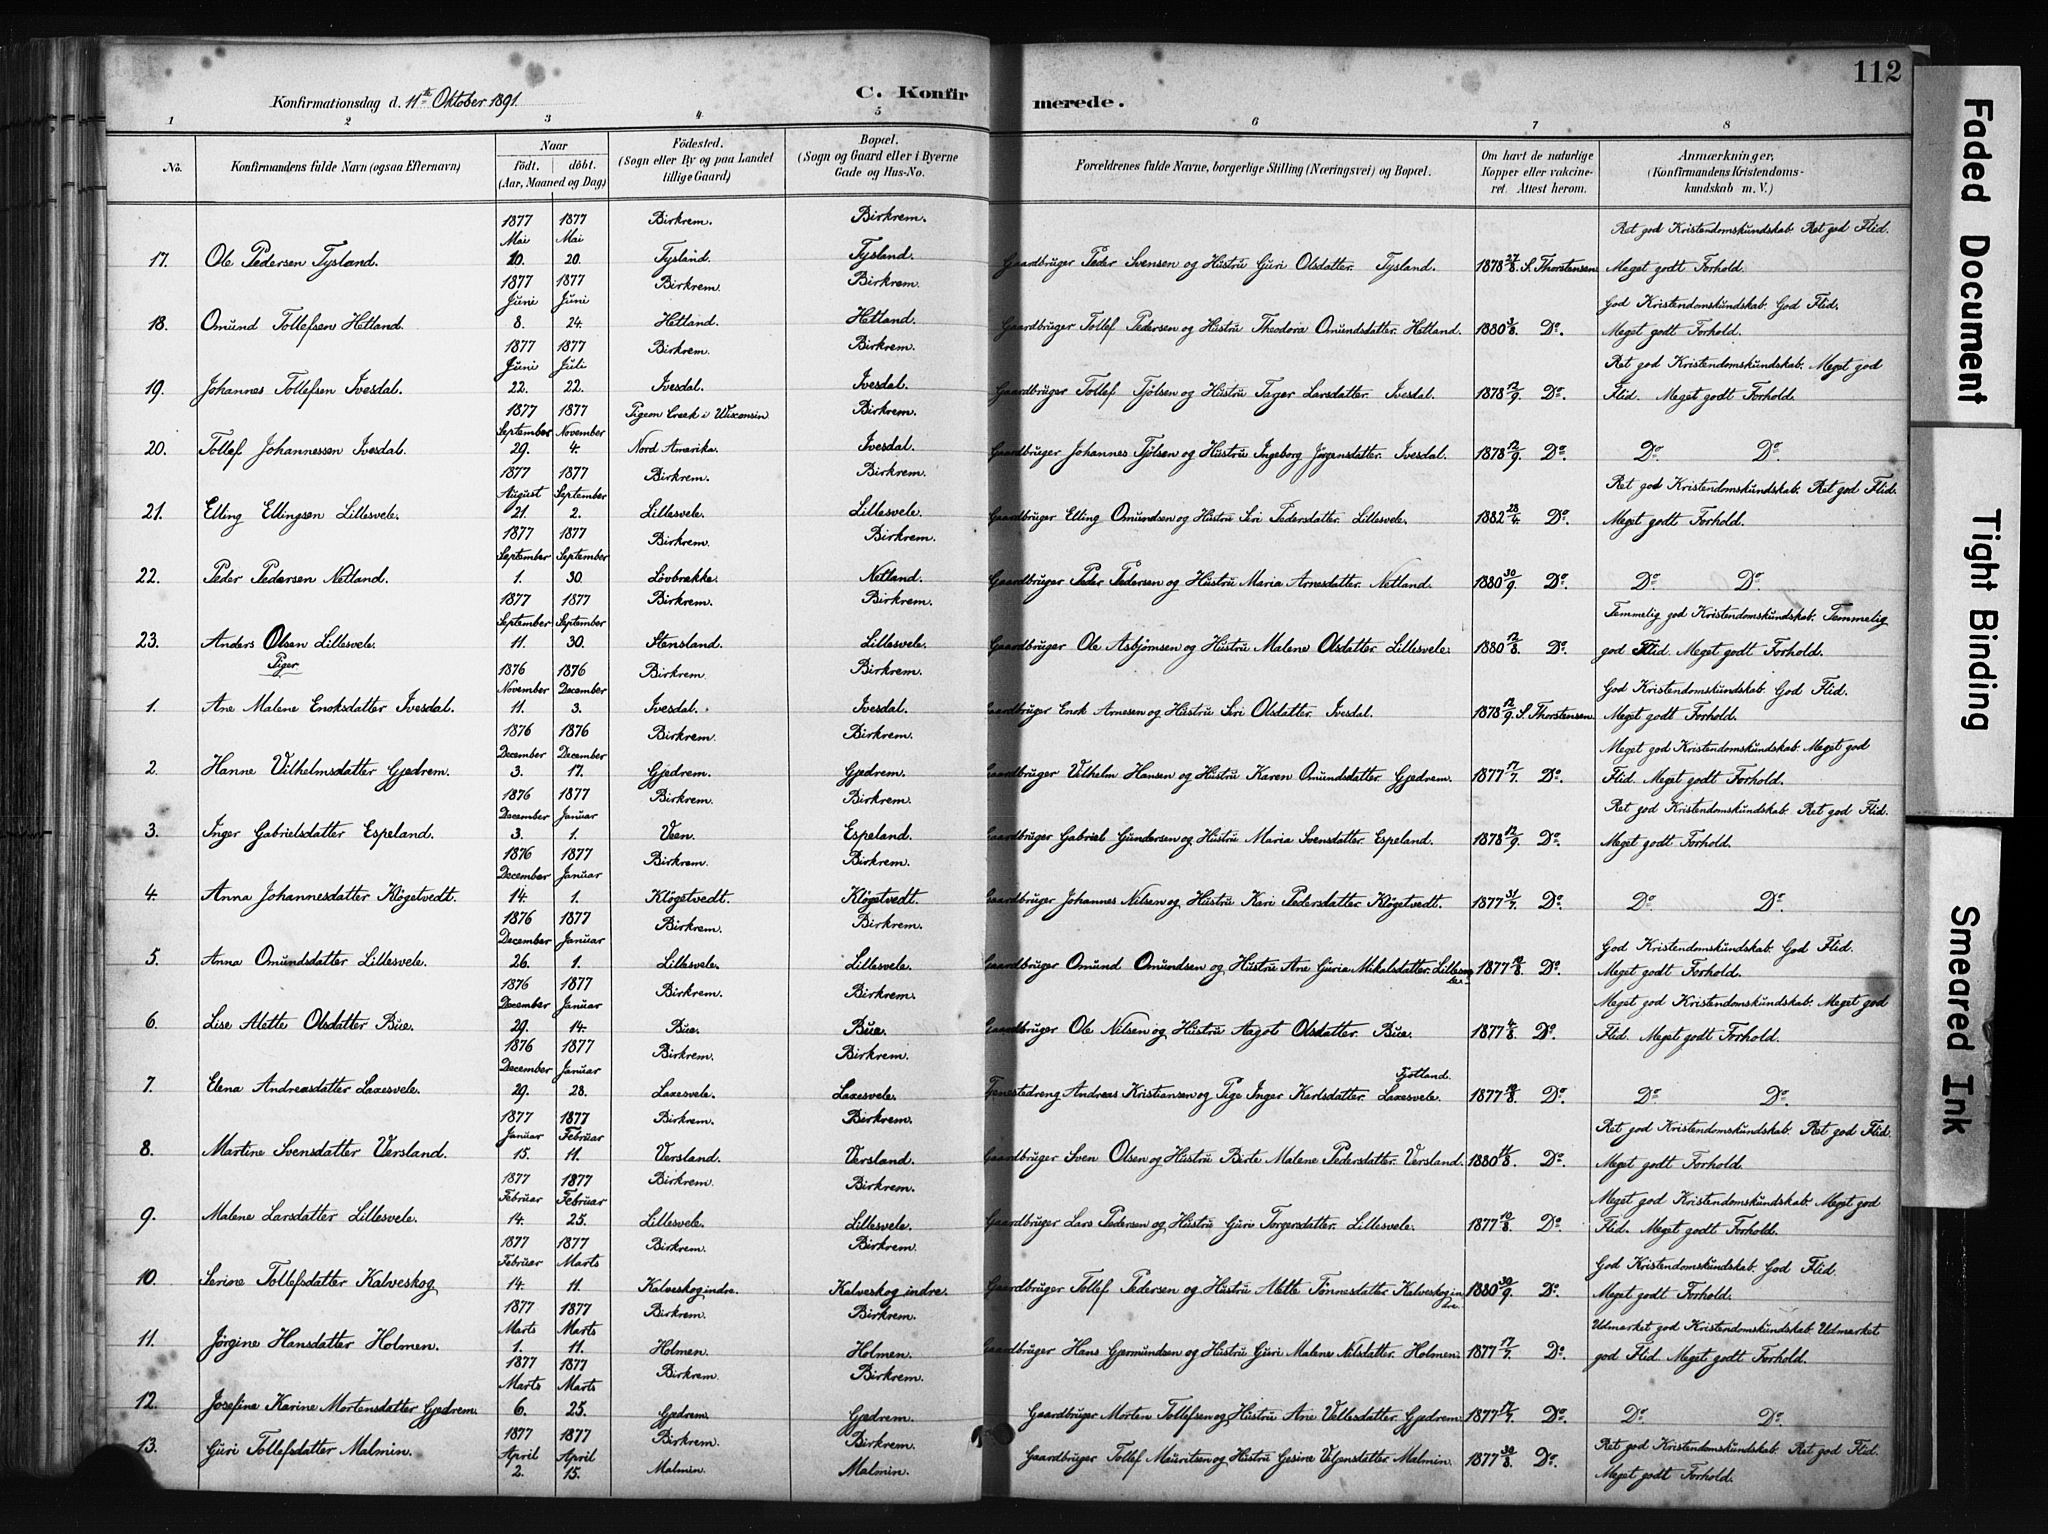 112
Konfirmationsdag d. 11te Oktober 1891.
C. Konfirmerede.
1 2 3 4 5 6 7 8
No. Konfirmandens fulde Navn (ogsaa Efternavn) Naar födt. döbt. (Aar, Maaned og Dag) Födested. (Sogn eller By og paa Landet tillige Gaard) Bopæl. (Sogn og Gaard eller i Byerne Gade og Hus-No. Forældrenes fulde Navne, borgerlige Stilling (Næringsvei) og Bopæl. Om havt de naturlige Kopper eller vakcineret. Attest herom. Anmærkninger, (Konfirmandens Kristendomskundskab m. V.)
1877 1877 Birkrem. Birkrem. Ret god Kristendomskundskab. Ret god Flid.
Mai Mai
17. Ole Pedersen Tysland. 10. 20. Tysland. Tysland. Gaardbruger Peder Svensen og Hustru Guri Olsdatter. Tysland. 1878 27/8. S. Thorstensen Meget godt Forhold.
1877 1877 Birkrem. Birkrem.
Juni Juni God Kristendomskundskab. God Flid.
18. Omund Tollefsen Hetland. 8. 24. Hetland. Hetland. Gaardbruger Tollef Pedersen og Hustru Theodora Omundsdatter. Hetland. 1880 3/8. Do. Meget godt Forhold.
1877 1877 Birkrem. Birkrem.
Juni Juli Ret god Kristendomskundskab. Meget god
19. Johannes Tollefsen Ivesdal. 22. 22. Ivesdal. Ivesdal. Gaardbruger Tollef Tjölsen og Hustru Tager Larsdatter. Ivesdal. 1878 12/9. Do. Flid. Meget godt Forhold.
1877 1877 Pigeon Creek i Wisconsin Birkrem.
September November
20. Tollef Johannessen Ivesdal. 29. 4. Nord Amerika. Ivesdal. Gaardbruger Johannes Tjölsen og Hustru Ingeborg Jörgensdatter. Ivesdal. 1878 12/9. Do. Do. Do.
1877 1877 Birkrem. Birkrem.
August September Ret god Kristendomskundskab. Ret god Flid.
21. Elling Ellingsen Lillesvele. 21. 2. Lillesvele. Lillesvele. Gaardbruger Elling Omundsen og Hustru Siri Pedersdatter. Lillesvele. 1882 28/4. Do. Meget godt Forhold.
1877 1877 Birkrem. Birkrem.
September September
22. Peder Pedersen Netland. 1. 30. Lövbrække. Netland. Gaardbruger Peder Pedersen og Hustru Maria Arnesdatter. Netland. 1880 30/9. Do. Do. Do.
1877 1877 Birkrem. Birkrem.
September September Temmelig god Kristendomskundskab. Temmelig
23. Anders Olsen Lillesvele. 11. 30. Stensland. Lillesvele. Gaardbruger Ole Asbjörnsen og Hustru Malene Olsdatter Lillesvele. 1880 12/8. Do. god Flid. Meget godt Forhold.
Piger
1876 1876 Birkrem. Birkrem.
November December God Kristendomskundskab. God Flid.
1. Ane Malene Enoksdatter Ivesdal. 11. 3. Ivesdal. Ivesdal. Gaardbruger Enok Arnesen og Hustru Siri Olsdatter. Ivesdal. 1878 12/9. S. Thorstensen Meget godt Forhold.
1876 1876 Birkrem. Birkrem.
December December Meget god Kristendomskundskab. Meget god
2. Hanne Vilhelmsdatter Gjedrem. 3. 17. Gjedrem. Gjedrem. Gaardbruger Vilhelm Hansen og Hustru Karen Omundsdatter. Gjedrem. 1877 17/7. Do. Flid. Meget godt Forhold.
1876 1877 Birkrem. Birkrem.
December Januar Ret god Kristendomskundskab. Ret god Flid.
3. Inger Gabrielsdatter Espeland. 3. 1. Veen. Espeland. Gaardbruger Gabriel Gundersen og Hustru Maria Svensdatter. Espeland. 1878 12/9. Do. Meget godt Forhold.
1876 1877 Birkrem. Birkrem.
December Januar
4. Anna Johannesdatter Klögetvedt. 14. 1. Klögetvedt. Klögetvedt. Gaardbruger Johannes Nilsen og Hustru Kari Pedersdatter. Klögetvedt. 1877 31/7. Do. Do. Do.
1876 1877 Birkrem. Birkrem.
December Januar God Kristendomskundskab. God Flid.
5. Anna Omundsdatter Lillesvele. 26. 1. Lillesvele. Lillesvele. Gaardbruger Omund Omundsen og Hustru Ane Guria Mikalsdatter. 1877 Do. Meget godt Forhold.
1876 1877 Birkrem. Birkrem.
December Januar Meget god Kristendomskundskab. Meget god
6. Lise Alette Olsdatter Bue. 29. 14. Bue. Bue. Gaardbruger Ole Nilsen og Hustru Aagot Olsdatter. Bue. 1877 4/8. Do. Flid. Meget godt Forhold.
1876 1877 Birkrem. Birkrem.
December Januar Fjotland.
7. Elena Andreasdatter Laxesvele. 29. 28. Laxesvele. Laxesvele. Tjenestedreng Andreas Kristiansen og Pige Inger Karlsdatter. Laxesvele. 1877 Do. Do. Do.
1877 1877 Birkrem. Birkrem.
Januar Februar Ret god Kristendomskundskab. Ret god Flid.
8. Martine Svensdatter Versland. 15. 11. Versland. Versland. Gaardbruger Sven Olsen og Hustru Birte Malene Pedersdatter. Versland. 1880 Do. Meget godt Forhold.
1877 1877 Birkrem. Birkrem.
Februar Februar Meget god Kristendomskundskab. Meget god
9. Malene Larsdatter Lillesvele. 14. 25. Lillesvele. Lillesvele. Gaardbruger Lars Pedersen og Hustru Guri Torgersdatter. Lillesvele. 1877 10/8. Do. Flid. Meget godt Forhold.
1877 1877 Birkrem. Birkrem.
Februar Marts God Kristendomskundskab. God Flid.
10. Serine Tollefsdatter Kalveskog 14. 11. Kalveskog indre. Kalveskog indre. Gaardbruger Tollef Pedersen og Hustru Mette Tönnesdatter Kalveskog indre. 1880 30/9. Do. Meget godt Forhold.
1877 1877 Birkrem. Birkrem.
Marts Marts Udmærket god Kristendomskundskab. Udmærket
11. Jörgine Hansdatter Holmen. 1. 11. Holmen. Holmen. Gaardbruger Hans Gjermundsen og Hustru Guri Malene Nilsdatter. Holmen. 1877 17/7. Do. god Flid. Meget godt Forhold.
1877 1877 Birkrem. Birkrem.
Marts Marts
12. Josefine Karine Mortensdatter Gjedrem. 6. 25. Gjedrem. Gjedrem. Gaardbruger Morten Tollefsen og Hustru Ane Vellesdatter. Gjedrem. 1877 17/7. Do. Do. Do.
1877 1877 Birkrem. Birkrem.
13. Guri Tollefsdatter Malmin. April April Ret god Kristendomskundskab. Ret god Flid.
2. 15. Malmin. Malmin. Gaardbruger Tollef Mauritsen og Hustru Gesine Valjensdatter Malmin. 1877 30/8. Do. Meget godt Forhold.
Faded Document
Tight Binding
Smeared Ink